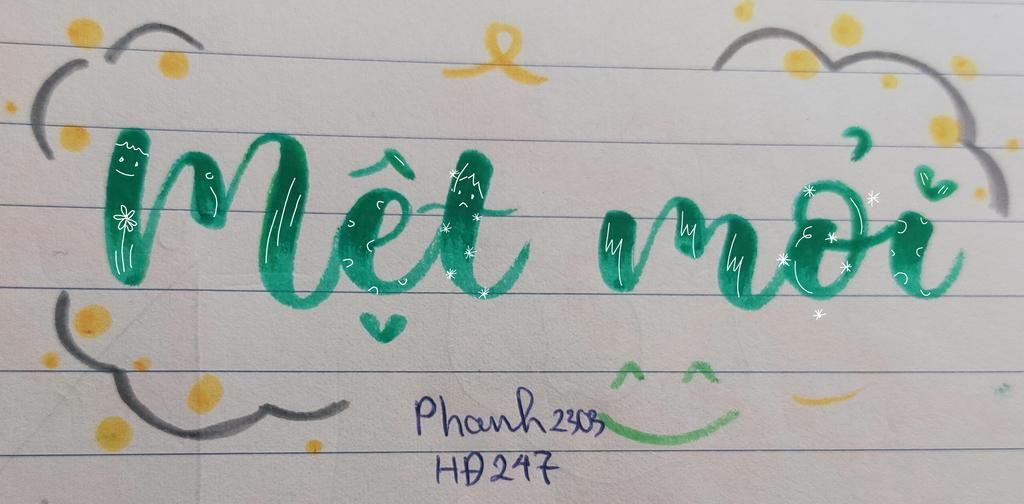 Mệt mỏi
Phanh2303
HĐ247